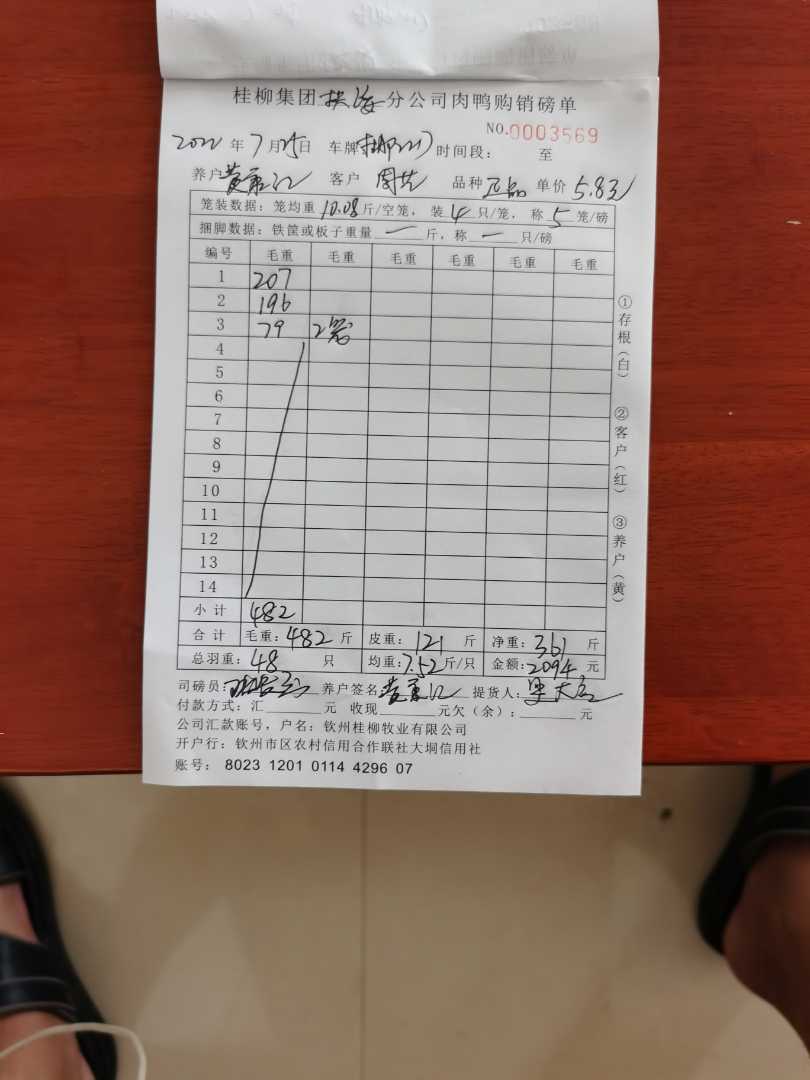 桂柳集团 分公司肉鸭购销磅单
NO.0003569
2022年7月25日 车牌 时间段： 至
养户 黄 江 客户 周 品种 正品 单价 5.8元
笼装数据：笼均重10.08斤/空笼，装4只/笼，称5笼/磅
捆脚数据：铁筐或板子重量一斤，称一只/磅
编号 毛重 毛重 毛重 毛重 毛重 毛重
1 207
2 196
3 79 2笼
4
5
6
7
8
9
10
11
12
13
14
小计 482
合计 毛重：482斤 皮重：121斤 净重：361斤
总羽重：48只 均重：7.52斤/只 金额：2094元
司磅员： 养户签名 黄 江 提货人：
付款方式：汇 元 收现 元欠（余）： 元
公司汇款账号，户名：钦州桂柳牧业有限公司
开户行：钦州市区农村信用合作联社大垌信用社
账号： 8023 1201 0114 4296 07
①存根（白） ②客户（红） ③养户（黄）